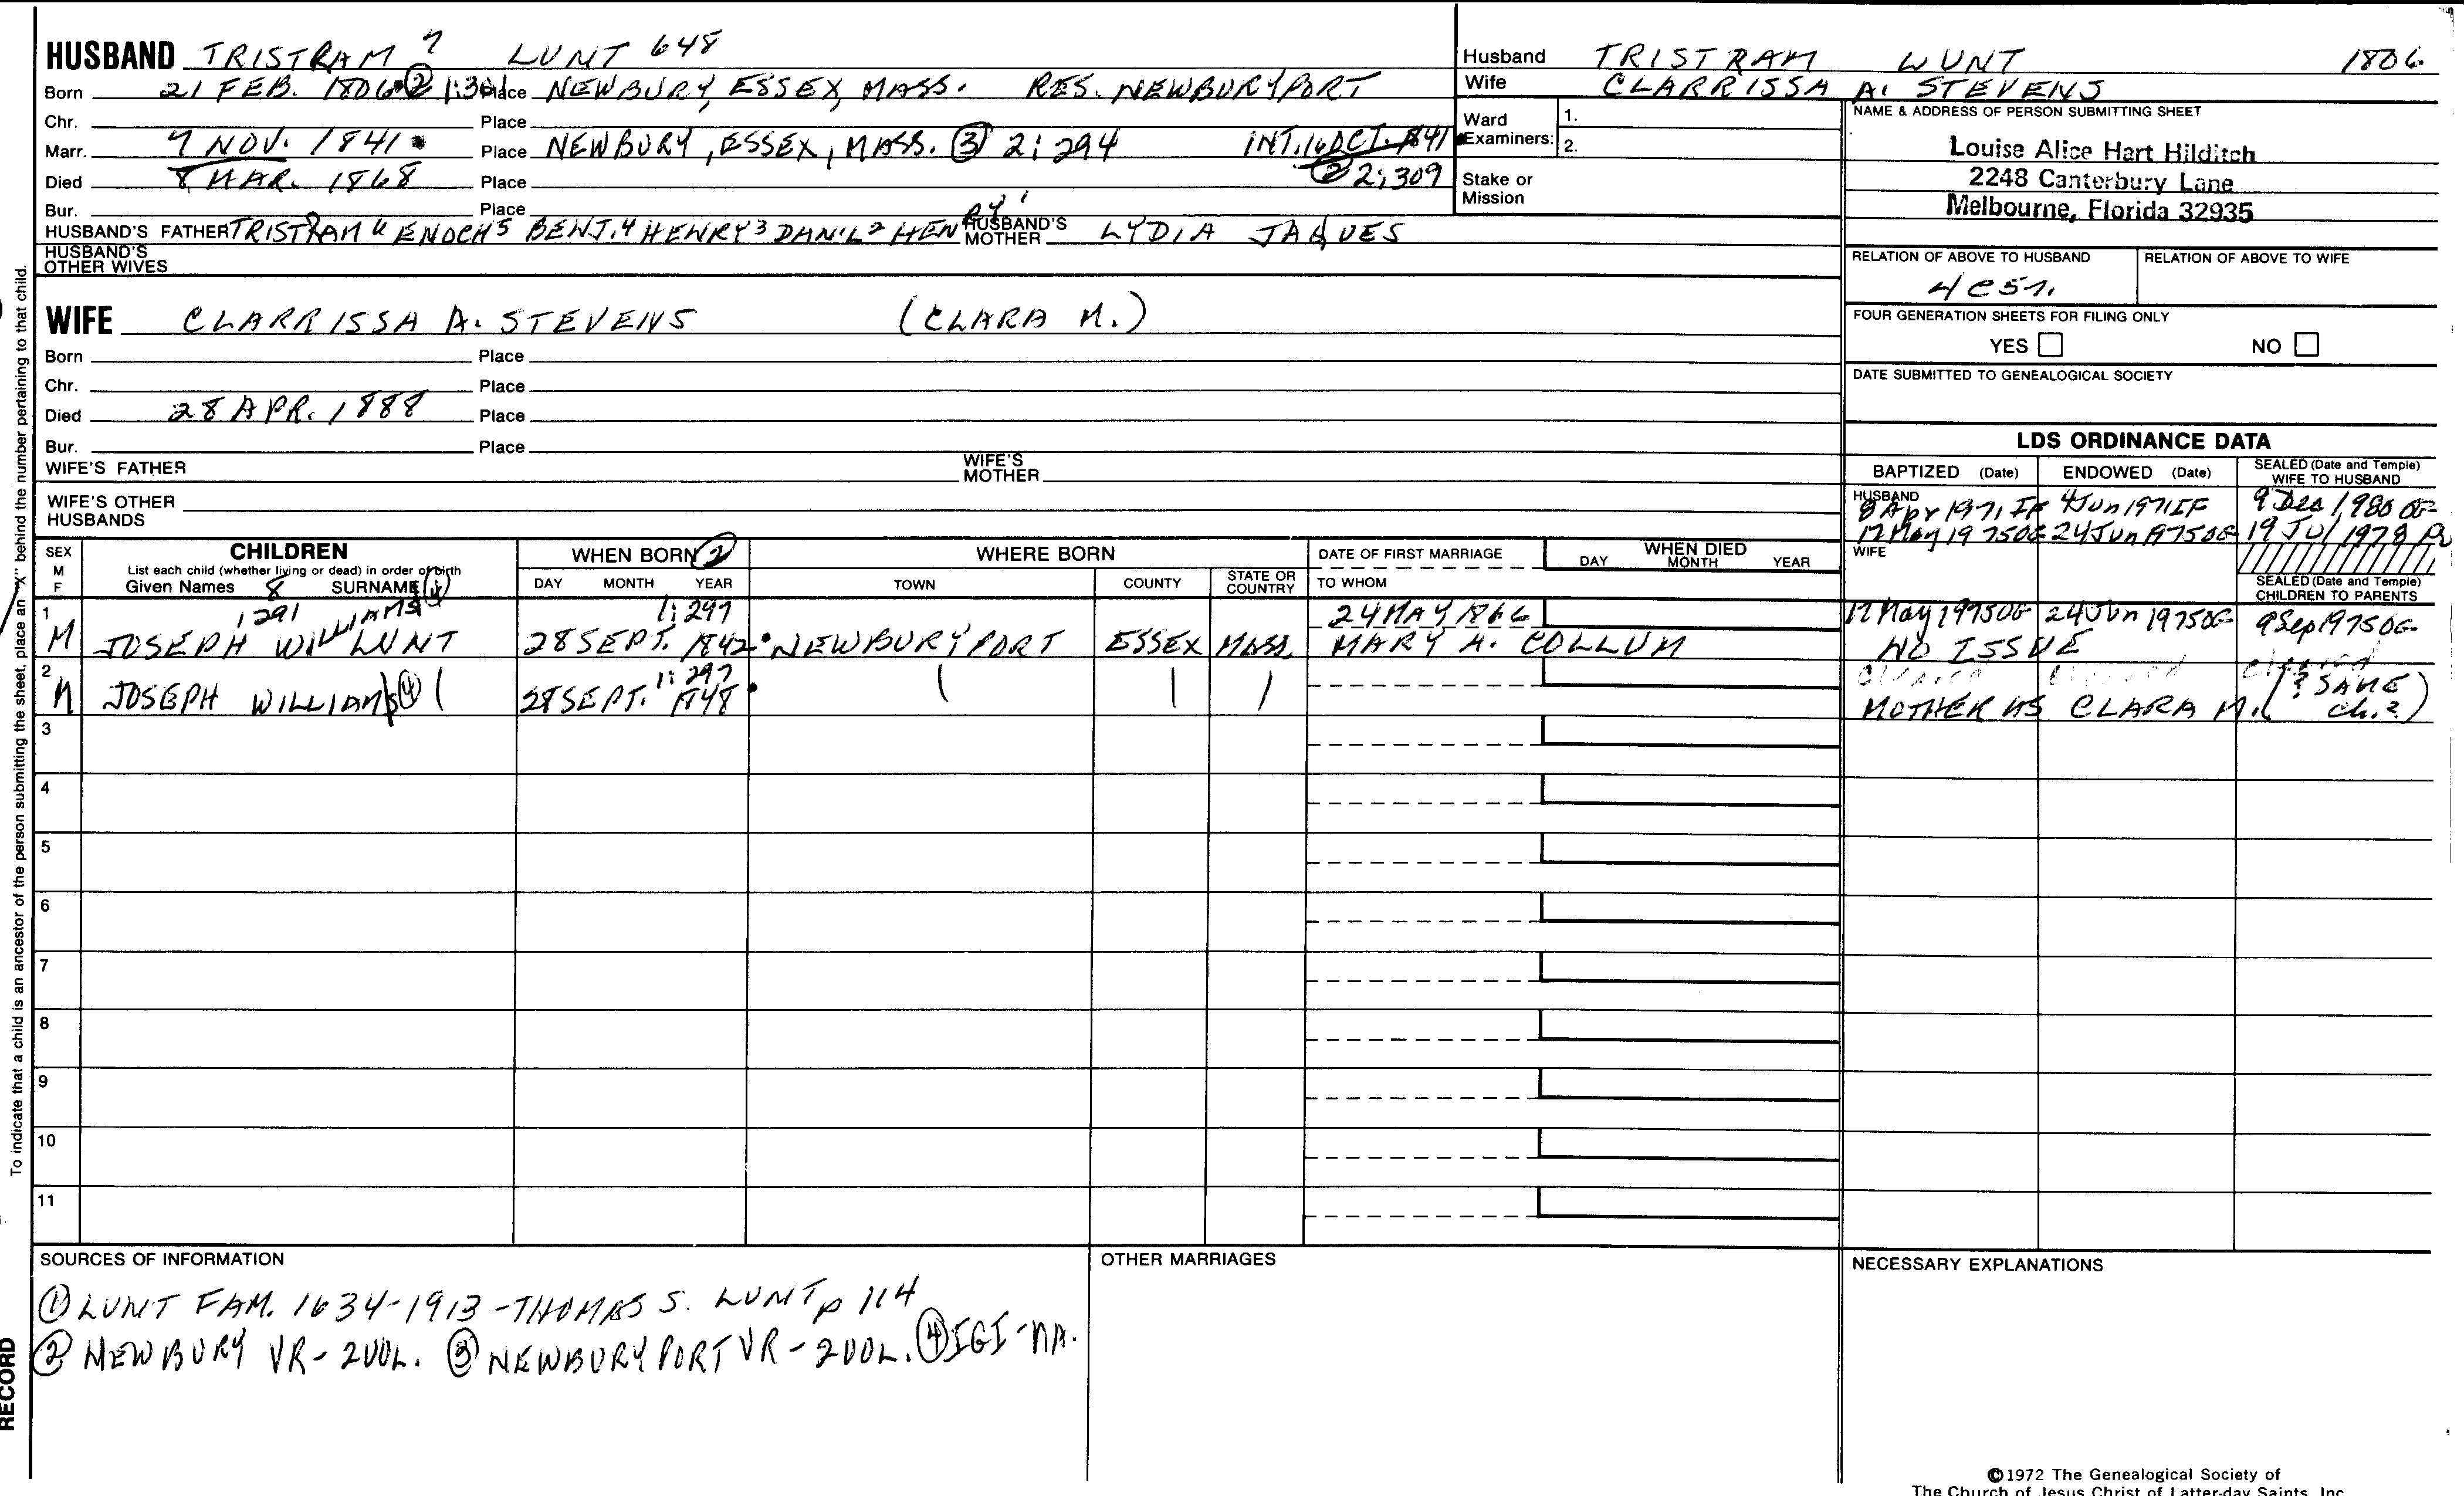 HUSBAND TRISTRAM 7 LUNT 648
Born 21 FEB. 1806 ② 1:301 Place NEWBURY, ESSEX, MASS. RES. NEWBURYPORT
Chr. Place
Marr. 7 NOV. 1841 Place NEWBURY, ESSEX, MASS. ③ 2:294 INT. 16 OCT. 1841
Died 8 MAR. 1868 Place ② 2:309
Bur. Place
HUSBAND'S FATHER TRISTRAM 6 ENOCH 5 BENJ. 4 HENRY 3 DAN'L 2 HENRY 1 HUSBAND'S MOTHER LYDIA JAQUES
HUSBAND'S OTHER WIVES
WIFE CLARRISSA A. STEVENS (CLARA M.)
Born Place
Chr. Place
Died 28 APR. 1888 Place
Bur. Place
WIFE'S FATHER WIFE'S MOTHER
WIFE'S OTHER HUSBANDS
Husband TRISTRAM LUNT 1806
Wife CLARRISSA A. STEVENS
Ward Examiners: 1.
2.
Stake or Mission
NAME & ADDRESS OF PERSON SUBMITTING SHEET
Louise Alice Hart Hilditch
2248 Canterbury Lane
Melbourne, Florida 32935
RELATION OF ABOVE TO HUSBAND RELATION OF ABOVE TO WIFE
FOUR GENERATION SHEETS FOR FILING ONLY
YES NO
DATE SUBMITTED TO GENEALOGICAL SOCIETY
LDS ORDINANCE DATA
BAPTIZED (Date) ENDOWED (Date) SEALED (Date and Temple) WIFE TO HUSBAND
HUSBAND
8 Apr 1971 IF 4 Jun 1971 IF 9 Dec 1980 OG
17 May 1975 OG 24 Jun 1975 OG 19 Jul 1978
WIFE
SEALED (Date and Temple) CHILDREN TO PARENTS
SEX M F CHILDREN WHEN BORN ② WHERE BORN DATE OF FIRST MARRIAGE WHEN DIED
List each child (whether living or dead) in order of birth DAY MONTH YEAR
Given Names 8 SURNAME ④ DAY MONTH YEAR TOWN COUNTY STATE OR COUNTRY TO WHOM
1 1291 IAMS 1:297 24 MAY 1866 17 May 1975 OG 24 Jun 1975 OG 9 Sep 1975 OG
M JOSEPH WILL LUNT 28 SEPT. 1842 NEWBURYPORT ESSEX MASS. MARY A. COLLUM NO ISSUE
2 1:297 cleared cleared cleared (? SAME
M JOSEPH WILLIAMS ④ 28 SEPT. 1848 MOTHER AS CLARA M. ch.?)
3
4
5
6
7
8
9
10
11
SOURCES OF INFORMATION
① LUNT FAM. 1634-1913 - THOMAS S. LUNT p 114
② NEWBURY VR - 2 VOL. ③ NEWBURYPORT VR - 2 VOL. ④ IGI - MA.
OTHER MARRIAGES
NECESSARY EXPLANATIONS
©1972 The Genealogical Society of
The Church of Jesus Christ of Latter-day Saints, Inc.
To indicate that a child is an ancestor of the person submitting the sheet, place an "X" behind the number pertaining to that child.
RECORD